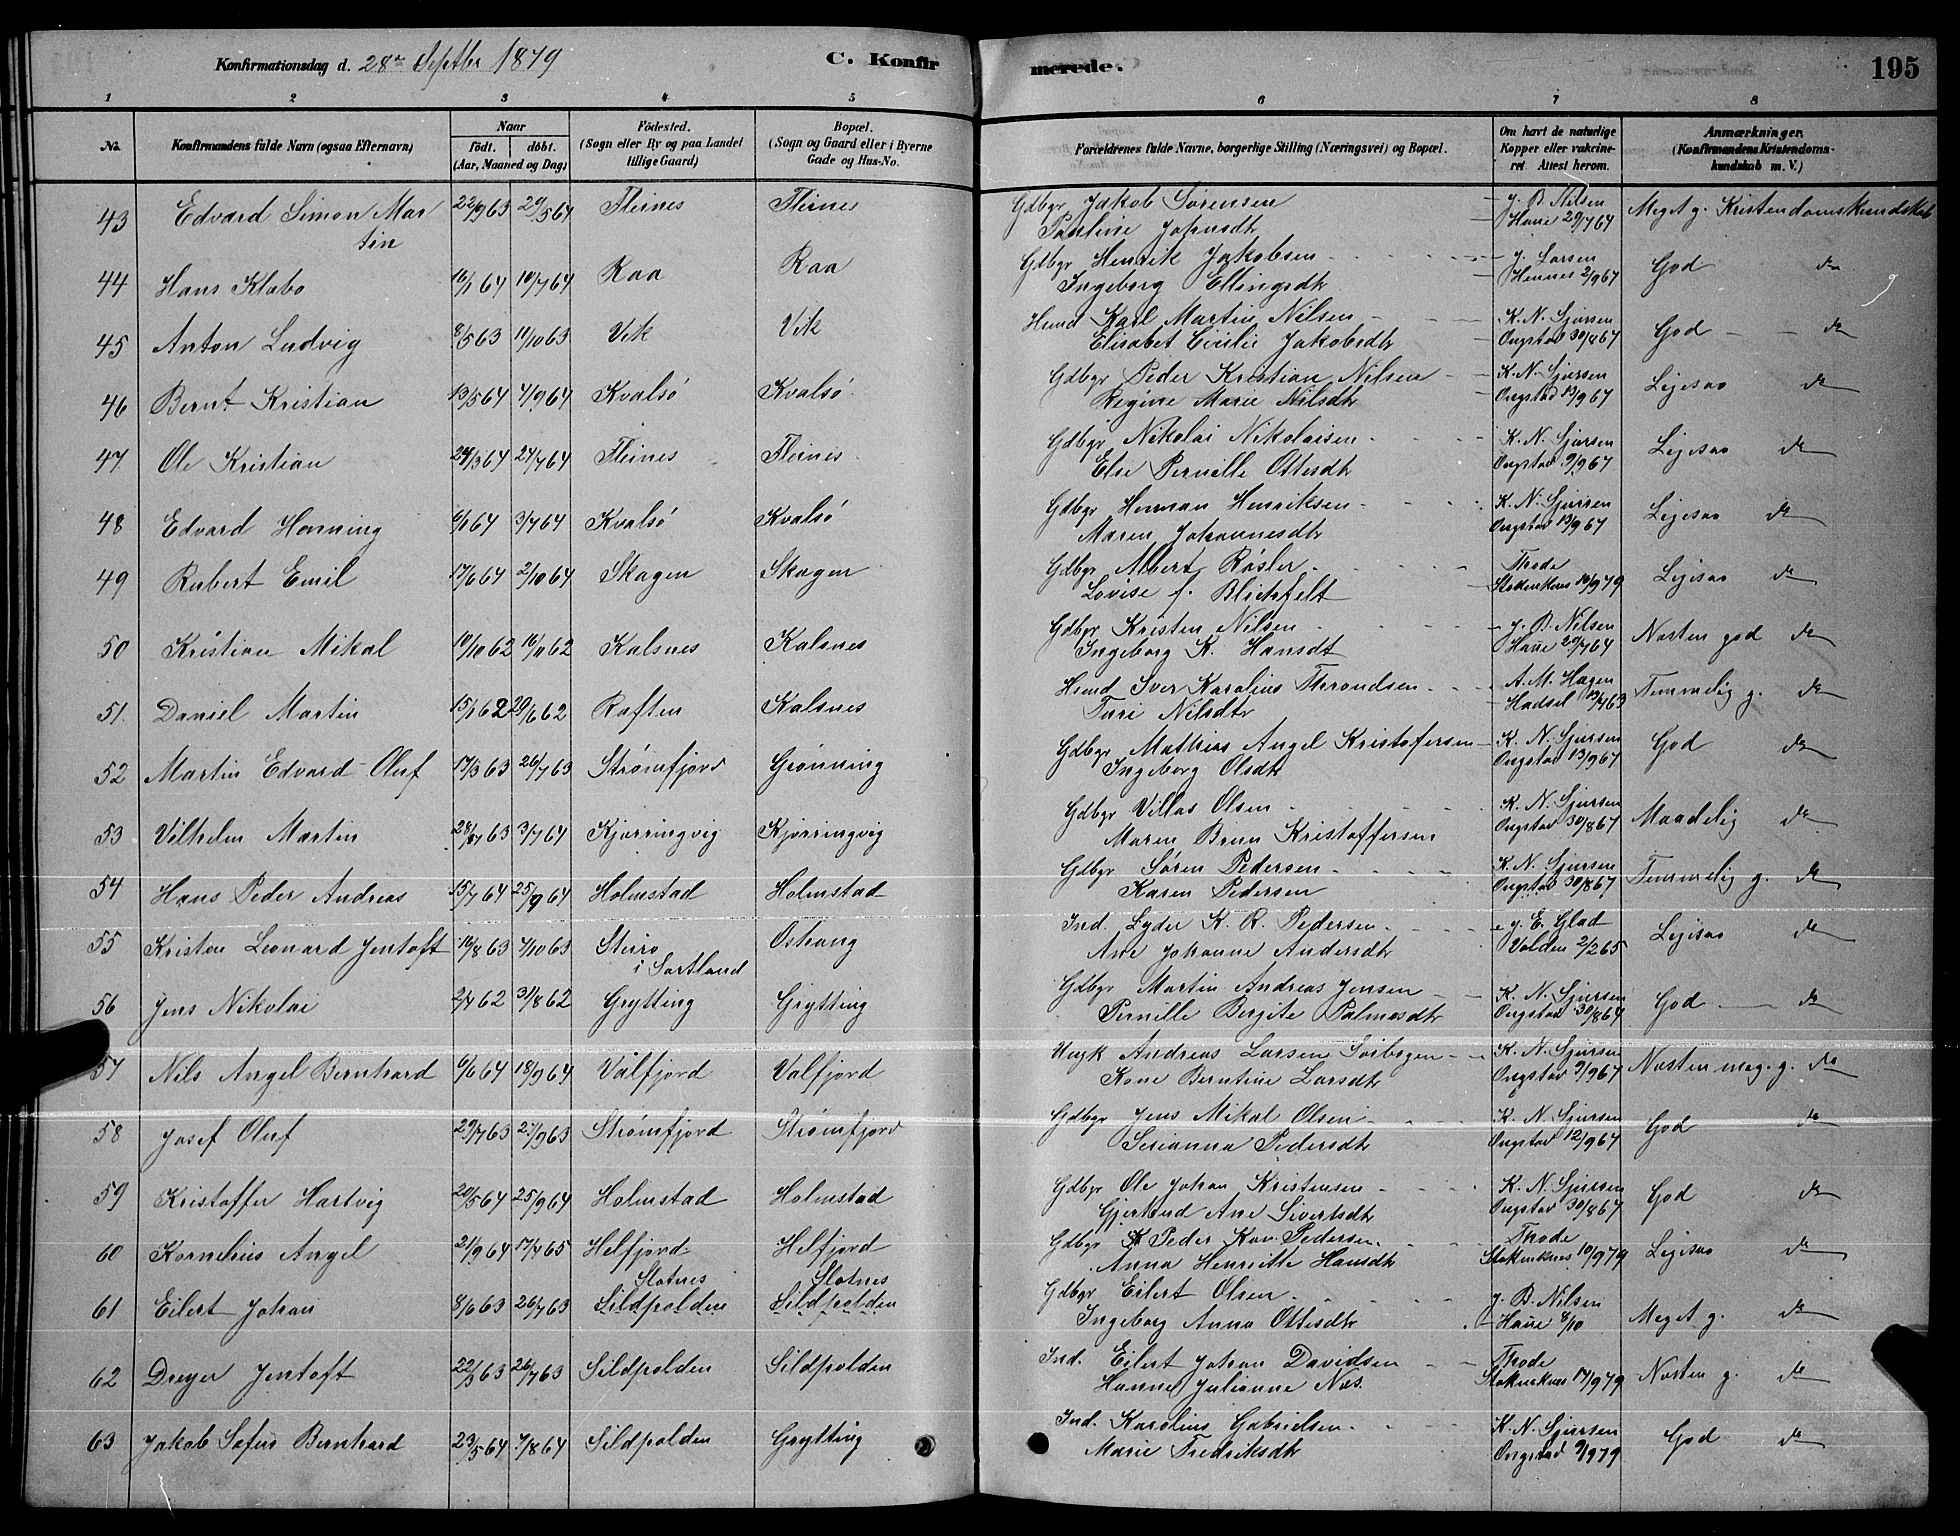 Konfirmationsdag d. 28de Septbr 1879
C. Konfirmerede.
195
1 2 3 4 5 6 7 8
No. Konfirmandens fulde Navn (ogsaa Efternavn) Naar födt. döbt. (Aar, Maaned og Dag) Födested. (Sogn eller By og paa Landet tillige Gaard) Bopæl. (Sogn og Gaard eller i Byerne Gade og Hus-No. Forældrenes fulde Navne, borgerlige Stilling (Næringsvei) og Bopæl. Om havt de naturlige Kopper eller vakcineret Attest herom. Anmærkninger. (Konfirmandens Kristendomskundskab m. V.)
43 Edvard Simon Martin 22/9 63 29/5 64 Fleines Fleines Gdbgr Jakob Sørensen J. B. Nilsen Meget g. Kristendomskundskab
Pauline Johnsdtr Haue 29/7 64
44 Hans Klabo 16/1 64 10/7 64 Raa Raa Gdbgr Henrik Jakobsen J. Larsen God do
Ingeborg Ellingsdtr Hennes 2/9 67
45 Anton Ludvig 8/5 63 11/10 63 Vik Vik Hsmd Karl Martin Nilsen K. N. Sjursen God do
Elisabet Cecilie Jakobsdtr Ongstad 30/8 67
46 Bernt Kristian 13/5 64 4/9 64 Kvalsö Kvalsö Gdbgr Peder Kristian Nilsen K. N. Sjursen Ligesaa do
Regine Marie Nilsdtr Ongstad 13/9 67
47 Ole Kristian 24/3 64 24/7 64 Fleines Fleines Gdbgr Nikolai Nikolaisen K. N. Sjursen Ligesaa do
Else Pernille Ottesdtr Ongstad 9/9 67
48 Edvard Henning 6/1 64 3/7 64 Kvalsö Kvalsö Gdbgr Herman Henriksen K. N. Sjursen Ligesaa do
Maren Johannesdtr Ongstad 13/9 67
49 Rubert Emil 17/6 64 2/10 64 Skagen Skagen Gdbgr Albert Røsler Thode Ligesaa do
Lovise f. Blichfelt Stokmknes 10/9 79
50 Kristian Mikal 10/10 62 16/11 62 Kalsnes Kalsnes Gdbgr Kristen Nilsen J. B. Nilsen Næsten god do
Ingeborg K. Hansdt Haue 29/7 64
51. Daniel Martin 15/1 62 29/6 62 Raften Kalsnes Hsmd Iver Karolius Throndsen A. M. Hagen Temmelig g. do
Turi Nilsdtr Hadsel 19/7 63
52 Martin Edvard Oluf 17/3 63 26/7 63 Strømfjord Grønning Gdbgr Mathias Angel Kristofersen K. N. Sjursen God do
Ingeborg Olsdtr Ongstad 13/9 67
53 Vilhelm Martin 28/7 63 3/7 64 Kjørringvig Kjørringvig Gdbgr Villas Olsen K. N. Sjursen Maadelig do
Maren Brun Kristoffersen Ongstad 30/8 67
54 Hans Peder Andreas 15/7 64 25/9 64 Holmstad Holmstad Gdbgr Søren Pedersen K. N. Sjursen Temmelig g. do
Karen Pedersen Ongstad 30/8 67
55 Kristen Leonard Jentoft 16/8 63 4/10 63 Stirro i Sortland Oshaug Ind. Lyder K. R. Pedersen J. E. Glad Ligesaa do
Ane Johanne Andersdtr Valden 2/2 65
56 Jens Nikolai 2/4 62 31/8 62 Grytting Grytting Gdbgr Martin Andreas Jensen K. N. Sjursen God do
Pernille Bergite Palmesdtr Ongstad 30/8 64
57 Nils Angel Bernhard 6/6 64 18/9 64 Valfjord Valfjord Ungk Andreas Larsen Seibogen K. N. Sjursen Næsten meg. g. do
Kone Berntine Larsdtr Ongstad 9/9 67
58 Josef Oluf 29/7 63 27/9 63 Strømfjord Strømfjord Gdbgr Jens Mikal Olsen K. N. Sjursen God do
Serianna Pedersdtr Ongstad 12/9 67
59 Kristoffer Hartvig 20/5 64 25/9 64 Holmstad Holmstad Gdbgr Ole Johan Kristensen K. N. Sjursen God do
Gjertrud Ane Sivertsdtr Ongstad 30/8 67
60 Kornelius Angel 21/9 64 17/4 65 Helfjord Helfjord Gdbgr Peder Kav. Pedersen Thode Ligesaa do
Slotnes Slotnes Anna Henriette Hansdtr Stokmknes 10/9 79
61 Eilert Johan 8/6 63 26/7 63 Sildpolden Sildpolden Gdbgr Eilert Olsen J. B. Nilsen Meget g. do
Ingeborg Anna Ottesdtr Haue 8/10
62 Dreyer Jentoft 22/3 63 26/7 63 Sildpolden Sildpolden Ind. Eilert Johan Davidsen Thode Næsten g. do
Hanna Julianne Næs. Stokmknes 17/9 79
63 Jakob Sefus Bernhard 23/5 64 7/8 64 Sildpolden Grytting Ind. Karolius Gabrielsen K. N. Sjursen God do
Marie Fredriksdtr Ongstad 9/9 79